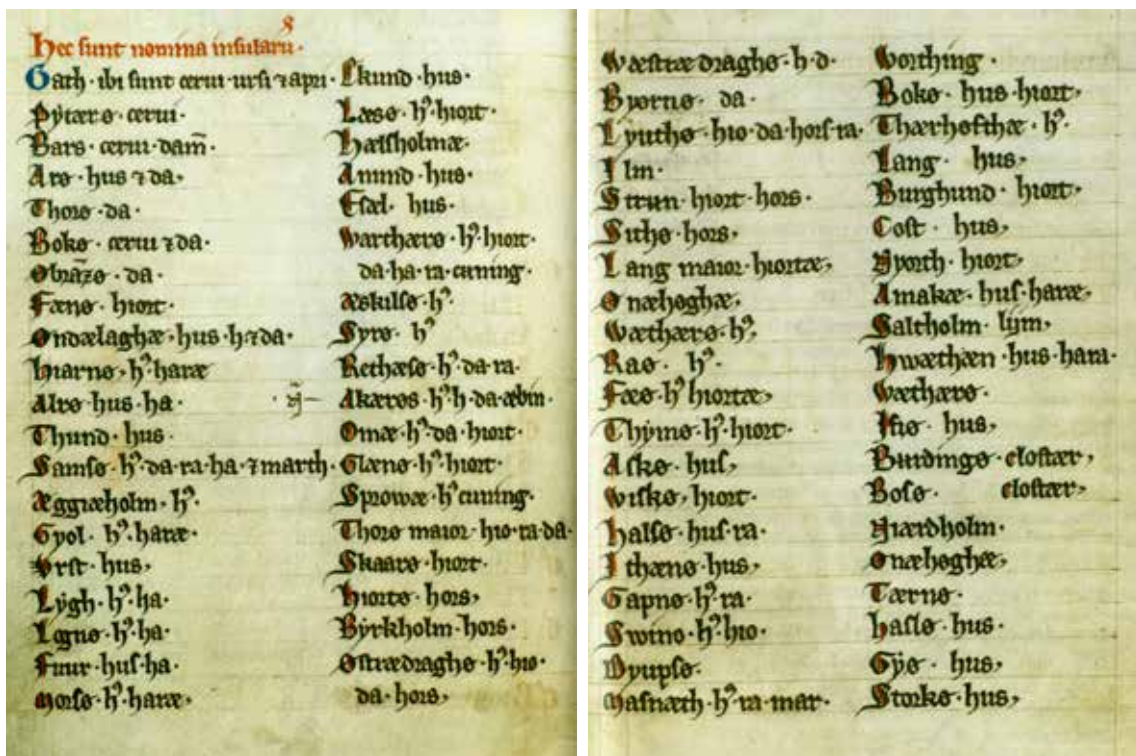 Hec sunt nomina insularū.
Gath · ibi sunt cerui · ursi ⁊ apri ·
Pytærø · cerui ·
Bars · cerui · dam̄ ·
Arø · hus ⁊ da ·
Thorø · da ·
Bokø · cerui ⁊ da ·
Obrāzø · da ·
Fænø · hiort ·
Ondælaghæ · hus · h · ⁊ da ·
Hiarnø · hꝰ · haræ
Alrø · hus · ha ·
Thund · hus ·
Samsø · hꝰ · da · ra · ha · ⁊ march ·
Æggræholm · hꝰ ·
Gyol · hꝰ · haræ ·
Vrst · hus ·
Lygh · hꝰ · ha ·
Lgnø · hꝰ · ha ·
Fuur · hus · ha ·
Morsø · hꝰ · haræ ·
Lkund · hus ·
Læsø · hꝰ · hiort ·
Hælsholmæ ·
Anund · hus ·
Esæl · hus ·
Warthærø · hꝰ · hiort ·
da · ha · ra · cuning ·
Æskilsø · hꝰ ·
Syrø · hꝰ
Rethæsø · hꝰ · da · ra ·
Akærøs · hꝰ · h · da · æbin ·
Omæ · hꝰ · da · hiort ·
Glænø · hꝰ · hiort ·
Sprowæ · hꝰ · cuning ·
Thorø maior · hio · ra · da ·
Skaarø · hiort ·
Hiortø · hors ·
Byrkholm · hors ·
Østrædraghø · hꝰ · hio ·
da · hors ·
Wæstrædraghø · h · d ·
Byornø · da ·
Lyuthø · hio · da · hors · ra ·
Ilm ·
Strun · hiort · hors ·
Sithø · hors ·
Lang maior · hiortæ ·
Onæhøghæ ·
Wæthærø · hꝰ ·
Raø · hꝰ ·
Fæø · hꝰ hiortæ ·
Thymø · hꝰ · hiort ·
Askø · hus ·
Wiskø · hiort ·
Halsø · hus · ra ·
Ithænø · hus ·
Gapnø · hꝰ · ra ·
Swinø · hꝰ · hio ·
Dyupsø ·
Masnæth · hꝰ · ra · mar ·
Worthing ·
Bokø · hus · hiort ·
Thærhøfthæ · hꝰ ·
Lang · hus ·
Burghund · hiort ·
Cost · hus ·
Nyorth · hiort ·
Amakæ · hus · haræ ·
Saltholm · lym ·
Hwæthæn · hus · hara ·
Wæthærø ·
Istø · hus ·
Burdingø · closter ·
Bosø · closter ·
Niærdholm ·
Onæhøghæ ·
Tærnø ·
Haslø · hus ·
Gyø · hus ·
Storkø · hus ·